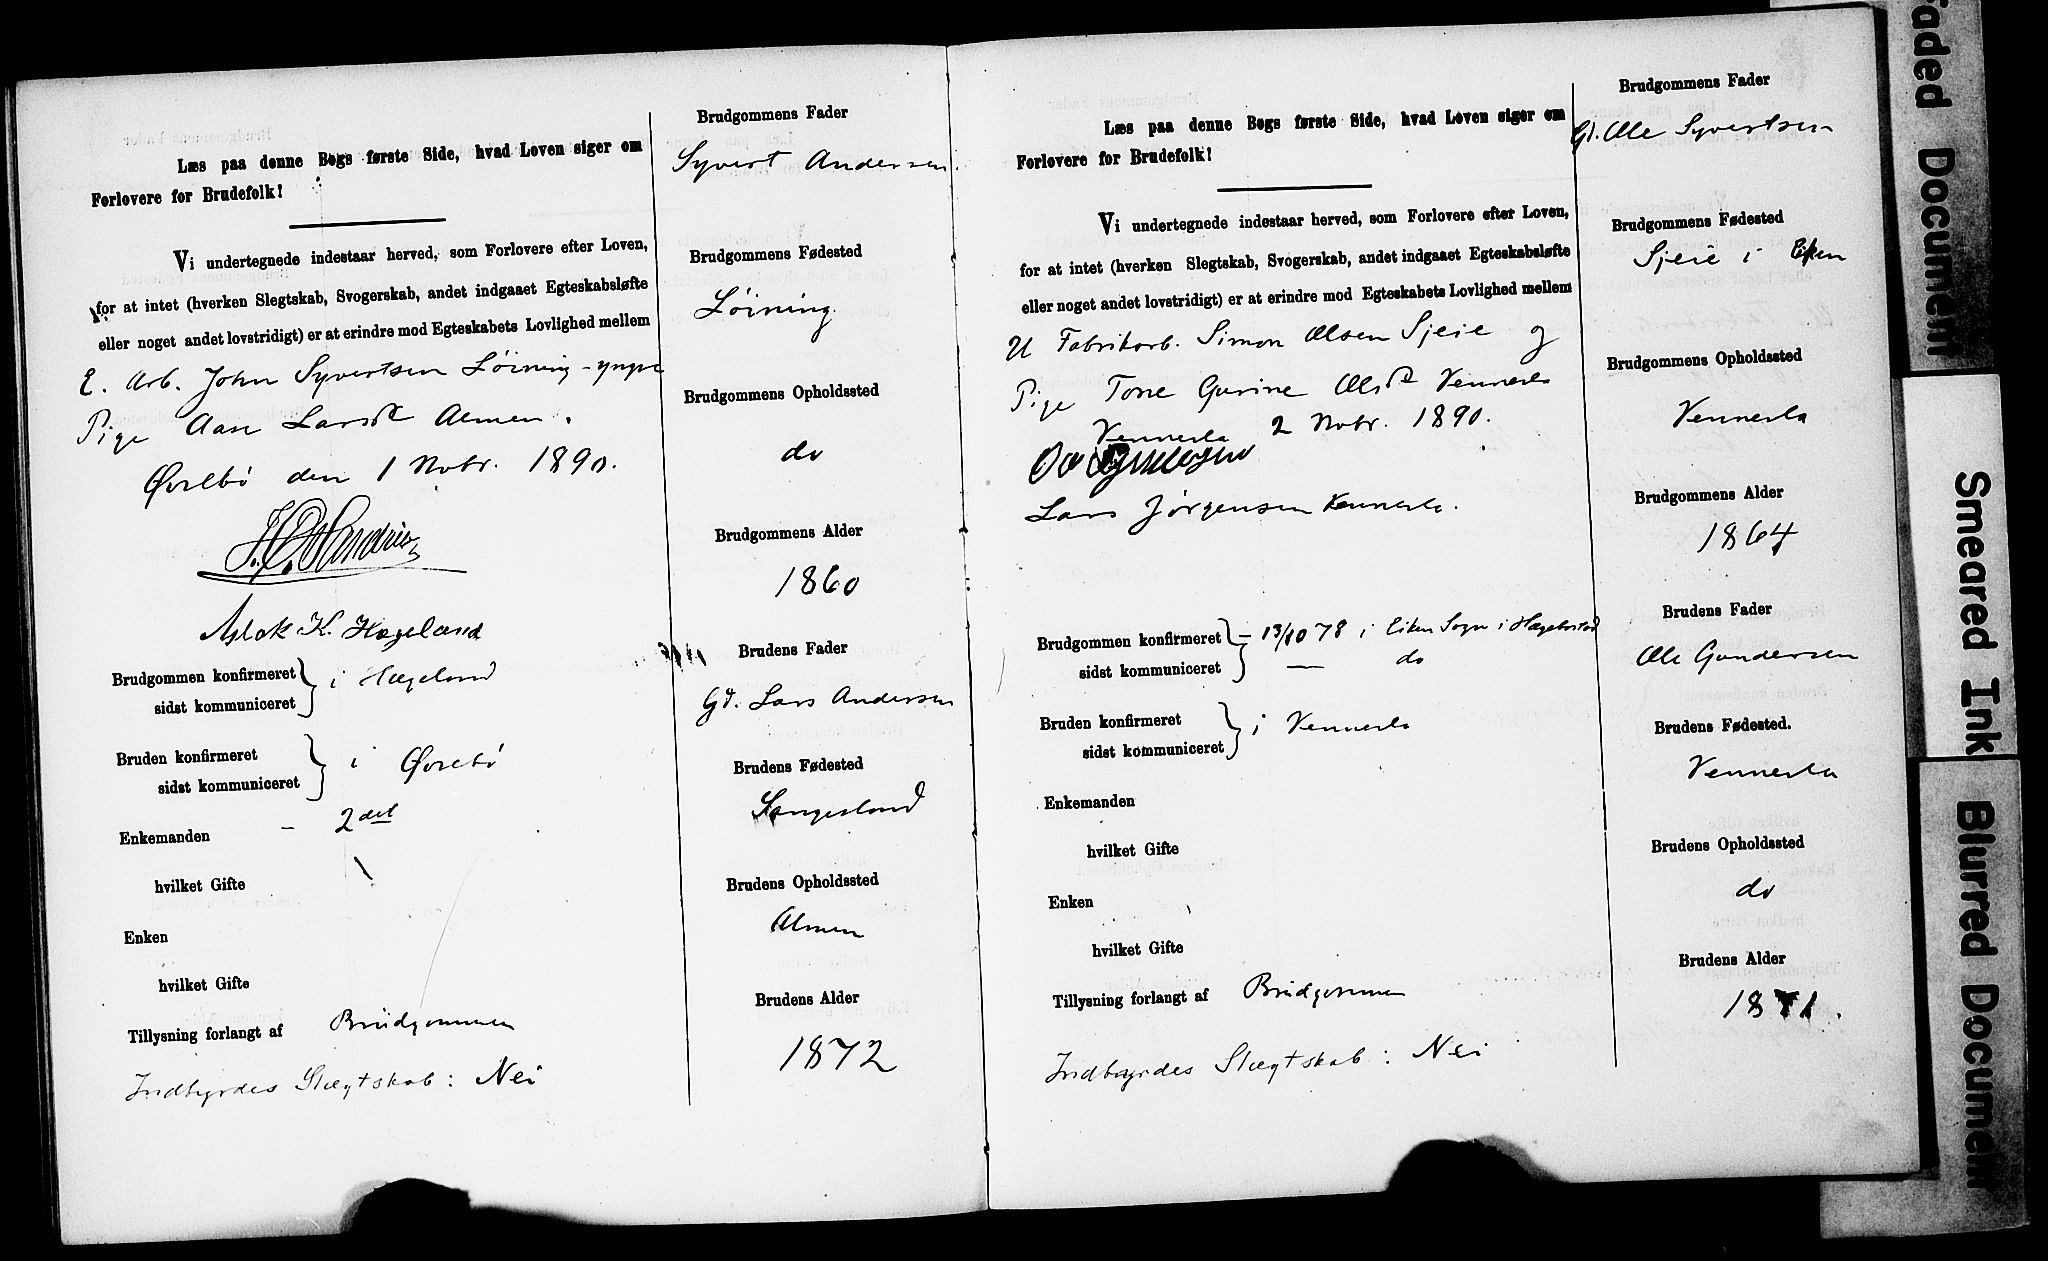 Læs paa denne Bogs første Side, hvad Loven siger om
Forlovere for Brudefolk!
Vi undertegnede indestaar herved, som Forlovere efter Loven,
for at intet (hverken Slegtskab, Svogerskab, andet indgaaet Egteskabsløfte
eller noget andet lovstridigt) er at erindre mod Egteskabets Lovlighed mellem
E. Arb. John Syvertsen Löining - yngre
Pige Aase Larsd Almen.
Øvrebö den 1 Novbr. 1890.
Aslak K. Hægeland
Brudgommen konfirmeret
sidst kommuniceret
i Hægeland
Bruden konfirmeret
sidst kommuniceret
i Øvrebö
Enkemanden - 2det
hvilket Gifte
Enken
hvilket Gifte
Tillysning forlangt af Brudgommen
Indbyrdes Slægtskab: Nei
Brudgommens Fader
Syvert Andersen.
Brudgommens Fødested
Löining.
Brudgommens Opholdssted
do
Brudgommens Alder
1860
Brudens Fader
Gd. Lars Andersen
Brudens Fødested
Brudens Opholdssted
Almen
Brudens Alder
1872
Læs paa denne Bogs første Side, hvad Loven siger om
Forlovere for Brudefolk!
Vi undertegnede indestaar herved, som Forlovere efter Loven,
for at intet (hverken Slegtskab, Svogerskab, andet indgaaet Egteskabsløfte
eller noget andet lovstridigt) er at erindre mod Egteskabets Lovlighed mellem
U Fabrikarb. Simon Olsen Sjeie og
Pige Tone Gurine Olsd Vennesla
Vennesla 2 Novbr. 1890.
Lars Jørgensen Vennesla.
Brudgommen konfirmeret
sidst kommuniceret
- 13/10 78 i Eiken Sogn i Hægebostad
— do
Bruden konfirmeret
sidst kommuniceret
i Vennesla
Enkemanden
hvilket Gifte
Enken
hvilket Gifte
Tillysning forlangt af Brudgommen
Indbyrdes Slægtskab: Nei
Brudgommens Fader
Gd. Ole Syvertsen
Brudgommens Fødested
Sjeie i Eiken
Brudgommens Opholdssted
Vennesla
Brudgommens Alder
1864
Brudens Fader
Ole Gundersen
Brudens Fødested.
Vennesla
Brudens Opholdssted
do
Brudens Alder
1871.
Faded Document
Smeared Ink
Blurred Document